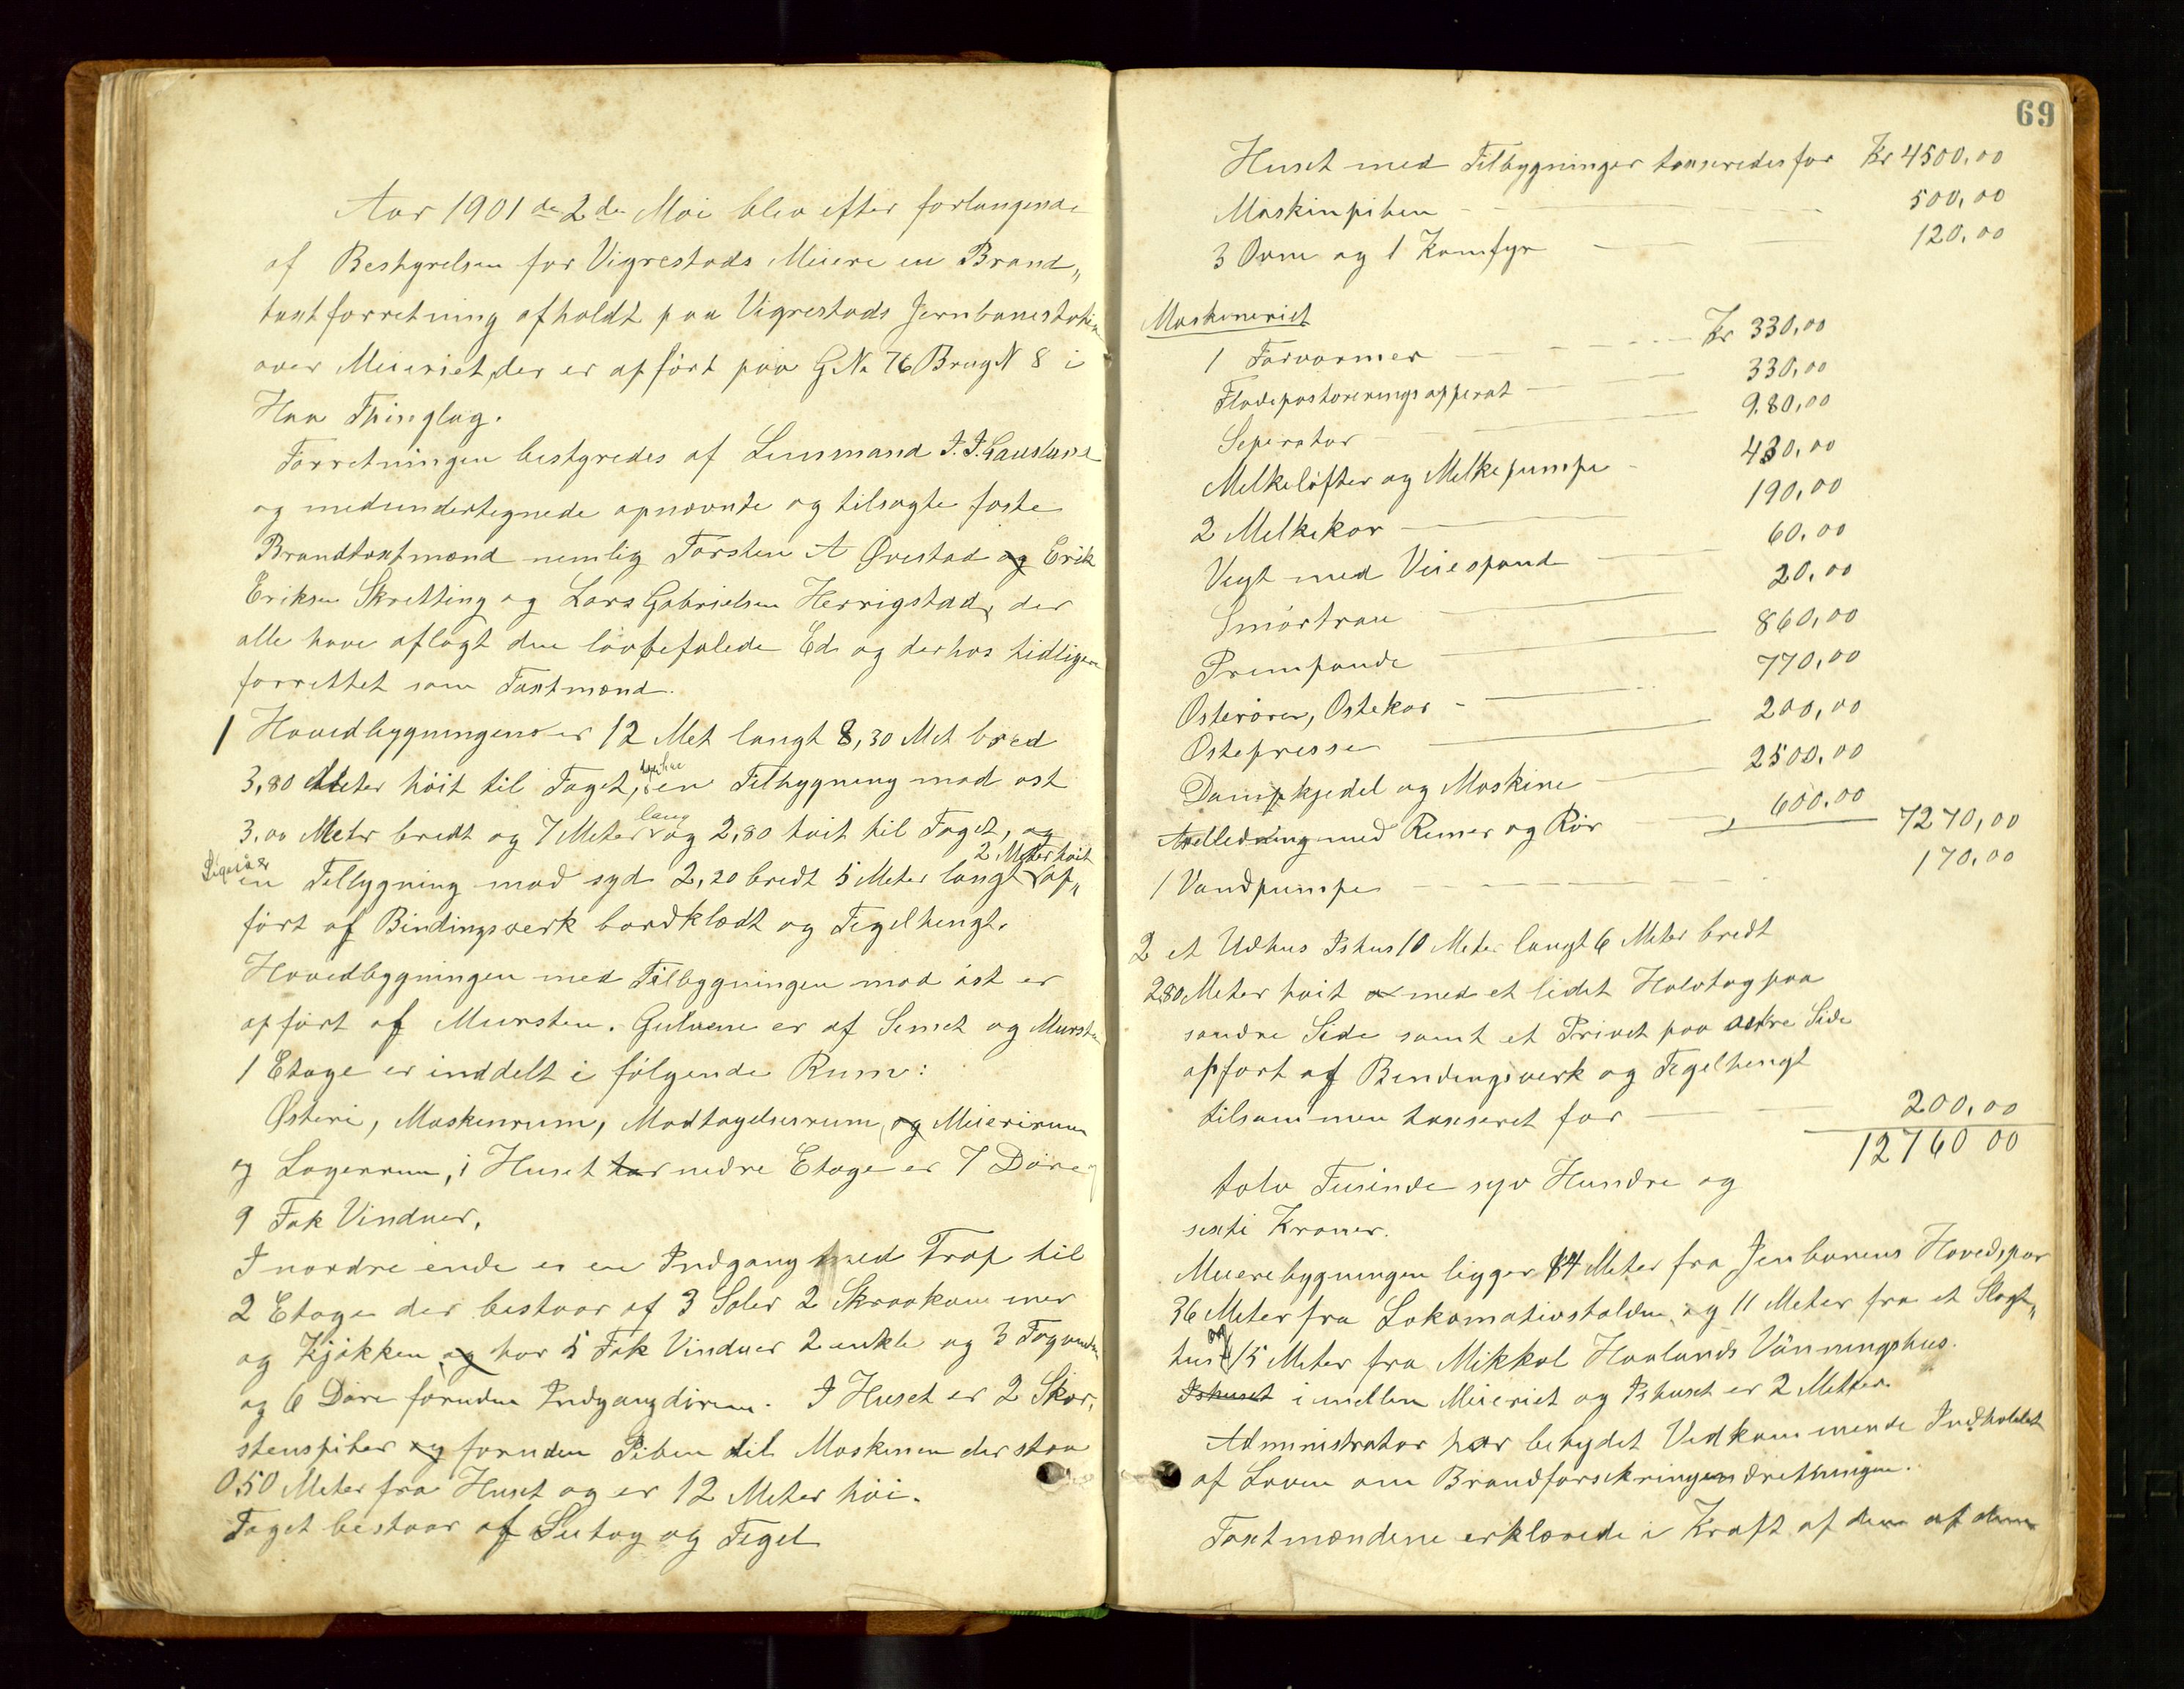 Aar 1901 den 2den Mai blev efter forlangende
af Bestyrelsen for Vigrestads Mieiere en Brand„
taxtforretning afholdt paa Vigrestads Jernbanestation
over Meieriet, der er opført paa G.No 76 Brug N 8 i
Haa Thinglag.
Forretningen bestyredes af Lensmand J. J. Gausland
og medundertegnede opnævnte og tilsagte faste
Brandtaxtmænd nemlig Torsten A Øvestad og Erik
Eriksen Skretting og Lars Gabrielsen Herrigstad, der
alle have aflagt den lovbefalede Ed og derhos tidligere
forrettet som Taxtmænd.
1 Hovedbygningen er 12 Met langt 8,30 Met bred
3,80 Meter høit til Taget, en Tilbygning mod øst
3.00 Meter bredt og 7 Meter lang og 2,80 høit til Taget, og
Ligesaa en Tilbygning mod syd 2,20 bredt 5 Meter langt 2 Meter høit op„
ført af Bindingsverk bordklædt og Tegelhengt.
Hovedbygningen med Tilbygningen mod øst er
opført af Mursten. Gulvene er af Sement og Mursten
1 Etage er inddelt i følgende Rum:
Østeri, Maskinrum, Modtagelsesrum, og Meierirum
og Lagerrum, i Huset har nedre Etage er 7 Døre og
9 Fak Vinduer.
I nordre ende er en Indgang med Trap til
2 Etage der bestaar af 3 Saler 2 Skraakammer
og Kjøkken og har 5 Fak Vinduer 2 enkle og 3 Fagvinduer
og 6 Døre foruden Indgangdøren. I Huset er 2 Skor„
stenspiber og foruden Piben til Maskinen der staar
0.50 Meter fra Huset og er 12 Meter høi.
Taget bestaar af Sutag og Tegel
69
Huset med Tilbygninger taxeredes for Kr 4500,00
Maskinpiben 500,00
3 Ovne og 1 Komfyr 120,00
Maskineriet
1 Forvarmer Kr 330,00
Flødepastoreringsapperat 330,00
Seperator 980,00
Melkeløfter og Melkepumpe 430,00
2 Melkekar 190,00
Vegt med Veiespand 60,00
Smørtrau 20,00
Primpande 860,00
Osterører, Ostekar 770,00
Ostepresse 200,00
Dampkjedel og Maskine 2500,00
Axelledning med Remer og Rør 600,00 7270,00
1 Vandpumpe 170,00
2 et Udhus Ishus 10 Meter langt 6 Meter bredt
2.80 Meter høit med et lidet Halvtag paa
søndre Side samt et Privet paa østre Side
opført af Bindingsverk og Tegelhengt
tilsammen taxseret for 200,00
12760 00
tolv Tusinde syv Hundre og
sexti Kroner.
Meierebygningen ligger 14 Meter fra Jenbanens Hovedspor
36 Meter fra Lokomativstalden, og 11 Meter fra et Slagt„
hus og 15 Meter fra Mikkal Haalands Vånningshus.
Ishuset imellem Meieriet og Ishuset er 2 Metter.
Administrator har betydet Vedkommende Indholdet
af Loven om Brandforsikringsindretningen.
Taxtmændene erklærede i Kraft af den af dem